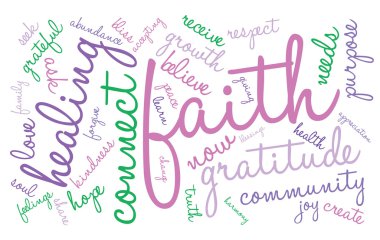 seek
grateful
abundance
bliss
accepting
receive
respect
purpose
needs
growth
believe
ask
healing
connect
faith
love
family
forgive
peace
learn
giving
appreciation
now
blessings
health
gratitude
kindness
change
soul
feelings
share
hope
truth
harmony
community
joy
create